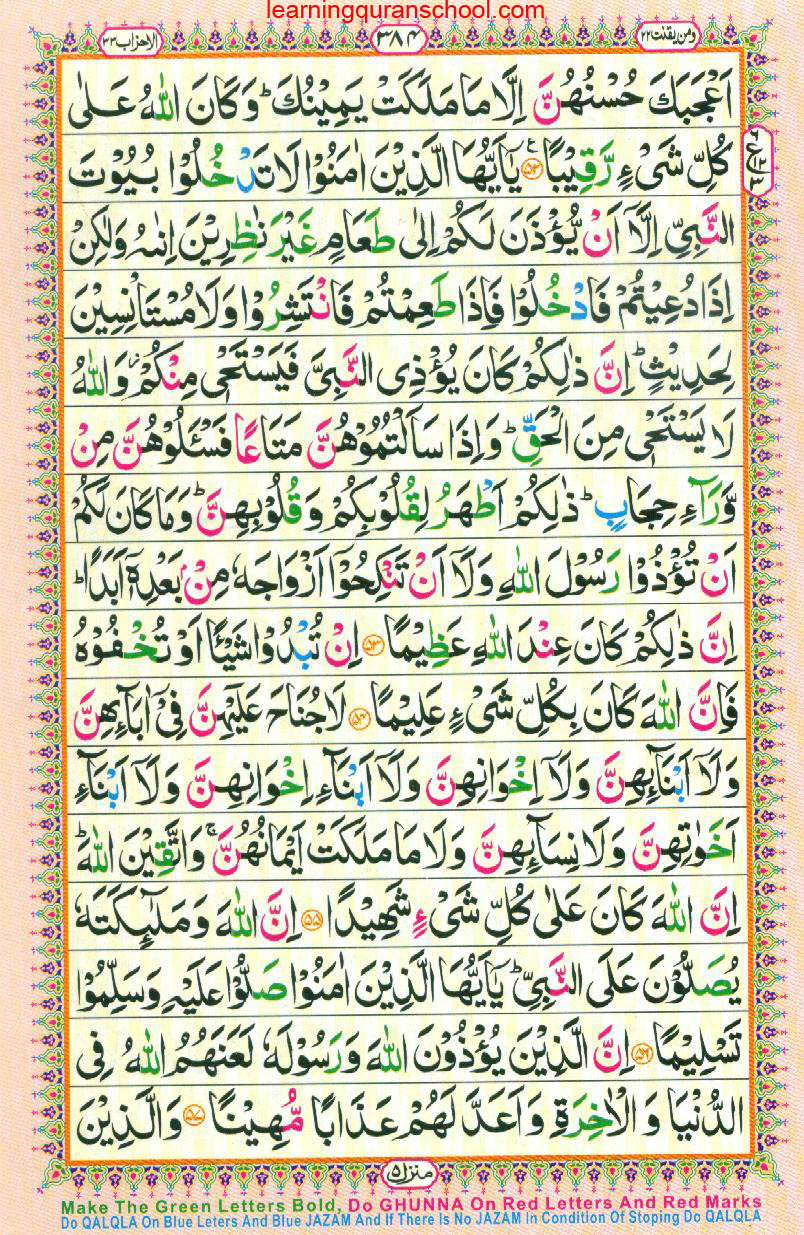 learningquranschool.com
ومن یقنت ۲۲
۳۸۴
الاحزاب ۳۳
اَعْجَبَكَ حُسْنُهُنَّ اِلَّا مَا مَلَكَتْ يَمِيْنُكَ ؕ وَكَانَ اللّٰهُ عَلٰى
كُلِّ شَىْءٍ رَّقِيْبًا ۟﴿۵۲﴾ يٰۤاَيُّهَا الَّذِيْنَ اٰمَنُوْا لَا تَدْخُلُوْا بُيُوْتَ
النَّبِىِّ اِلَّاۤ اَنْ يُّؤْذَنَ لَكُمْ اِلٰى طَعَامٍ غَيْرَ نٰظِرِيْنَ اِنٰىهُ وَلٰكِنْ
اِذَا دُعِيْتُمْ فَادْخُلُوْا فَاِذَا طَعِمْتُمْ فَانْتَشِرُوْا وَلَا مُسْتَاْنِسِيْنَ
لِحَدِيْثٍ ؕ اِنَّ ذٰلِكُمْ كَانَ يُؤْذِى النَّبِىَّ فَيَسْتَحْىٖ مِنْكُمْ ؗ وَاللّٰهُ
لَا يَسْتَحْىٖ مِنَ الْحَقِّ ؕ وَاِذَا سَاَلْتُمُوْهُنَّ مَتَاعًا فَسْئَلُوْهُنَّ مِنْ
وَّرَآءِ حِجَابٍ ؕ ذٰلِكُمْ اَطْهَرُ لِقُلُوْبِكُمْ وَقُلُوْبِهِنَّ ؕ وَمَا كَانَ لَكُمْ
اَنْ تُؤْذُوْا رَسُوْلَ اللّٰهِ وَلَاۤ اَنْ تَنْكِحُوْۤا اَزْوَاجَهٗ مِنْۢ بَعْدِهٖۤ اَبَدًا ؕ
اِنَّ ذٰلِكُمْ كَانَ عِنْدَ اللّٰهِ عَظِيْمًا ﴿۵۳﴾ اِنْ تُبْدُوْا شَيْئًا اَوْ تُخْفُوْهُ
فَاِنَّ اللّٰهَ كَانَ بِكُلِّ شَىْءٍ عَلِيْمًا ﴿۵۴﴾ لَا جُنَاحَ عَلَيْهِنَّ فِىْۤ اٰبَآئِهِنَّ
وَلَاۤ اَبْنَآئِهِنَّ وَلَاۤ اِخْوَانِهِنَّ وَلَاۤ اَبْنَآءِ اِخْوَانِهِنَّ وَلَاۤ اَبْنَآءِ
اَخَوٰتِهِنَّ وَلَا نِسَآئِهِنَّ وَلَا مَا مَلَكَتْ اَيْمَانُهُنَّ ۚ وَاتَّقِيْنَ اللّٰهَ ؕ
اِنَّ اللّٰهَ كَانَ عَلٰى كُلِّ شَىْءٍ شَهِيْدًا ﴿۵۵﴾ اِنَّ اللّٰهَ وَمَلٰٓئِكَتَهٗ
يُصَلُّوْنَ عَلَى النَّبِىِّ ؕ يٰۤاَيُّهَا الَّذِيْنَ اٰمَنُوْا صَلُّوْا عَلَيْهِ وَسَلِّمُوْا
تَسْلِيْمًا ﴿۵۶﴾ اِنَّ الَّذِيْنَ يُؤْذُوْنَ اللّٰهَ وَرَسُوْلَهٗ لَعَنَهُمُ اللّٰهُ فِى
الدُّنْيَا وَالْاٰخِرَةِ وَاَعَدَّ لَهُمْ عَذَابًا مُّهِيْنًا ﴿۵۷﴾ وَالَّذِيْنَ
منزل ۵
Make The Green Letters Bold, Do GHUNNA On Red Letters And Red Marks
Do QALQLA On Blue Leters And Blue JAZAM And If There Is No JAZAM In Condition Of Stoping Do QALQLA